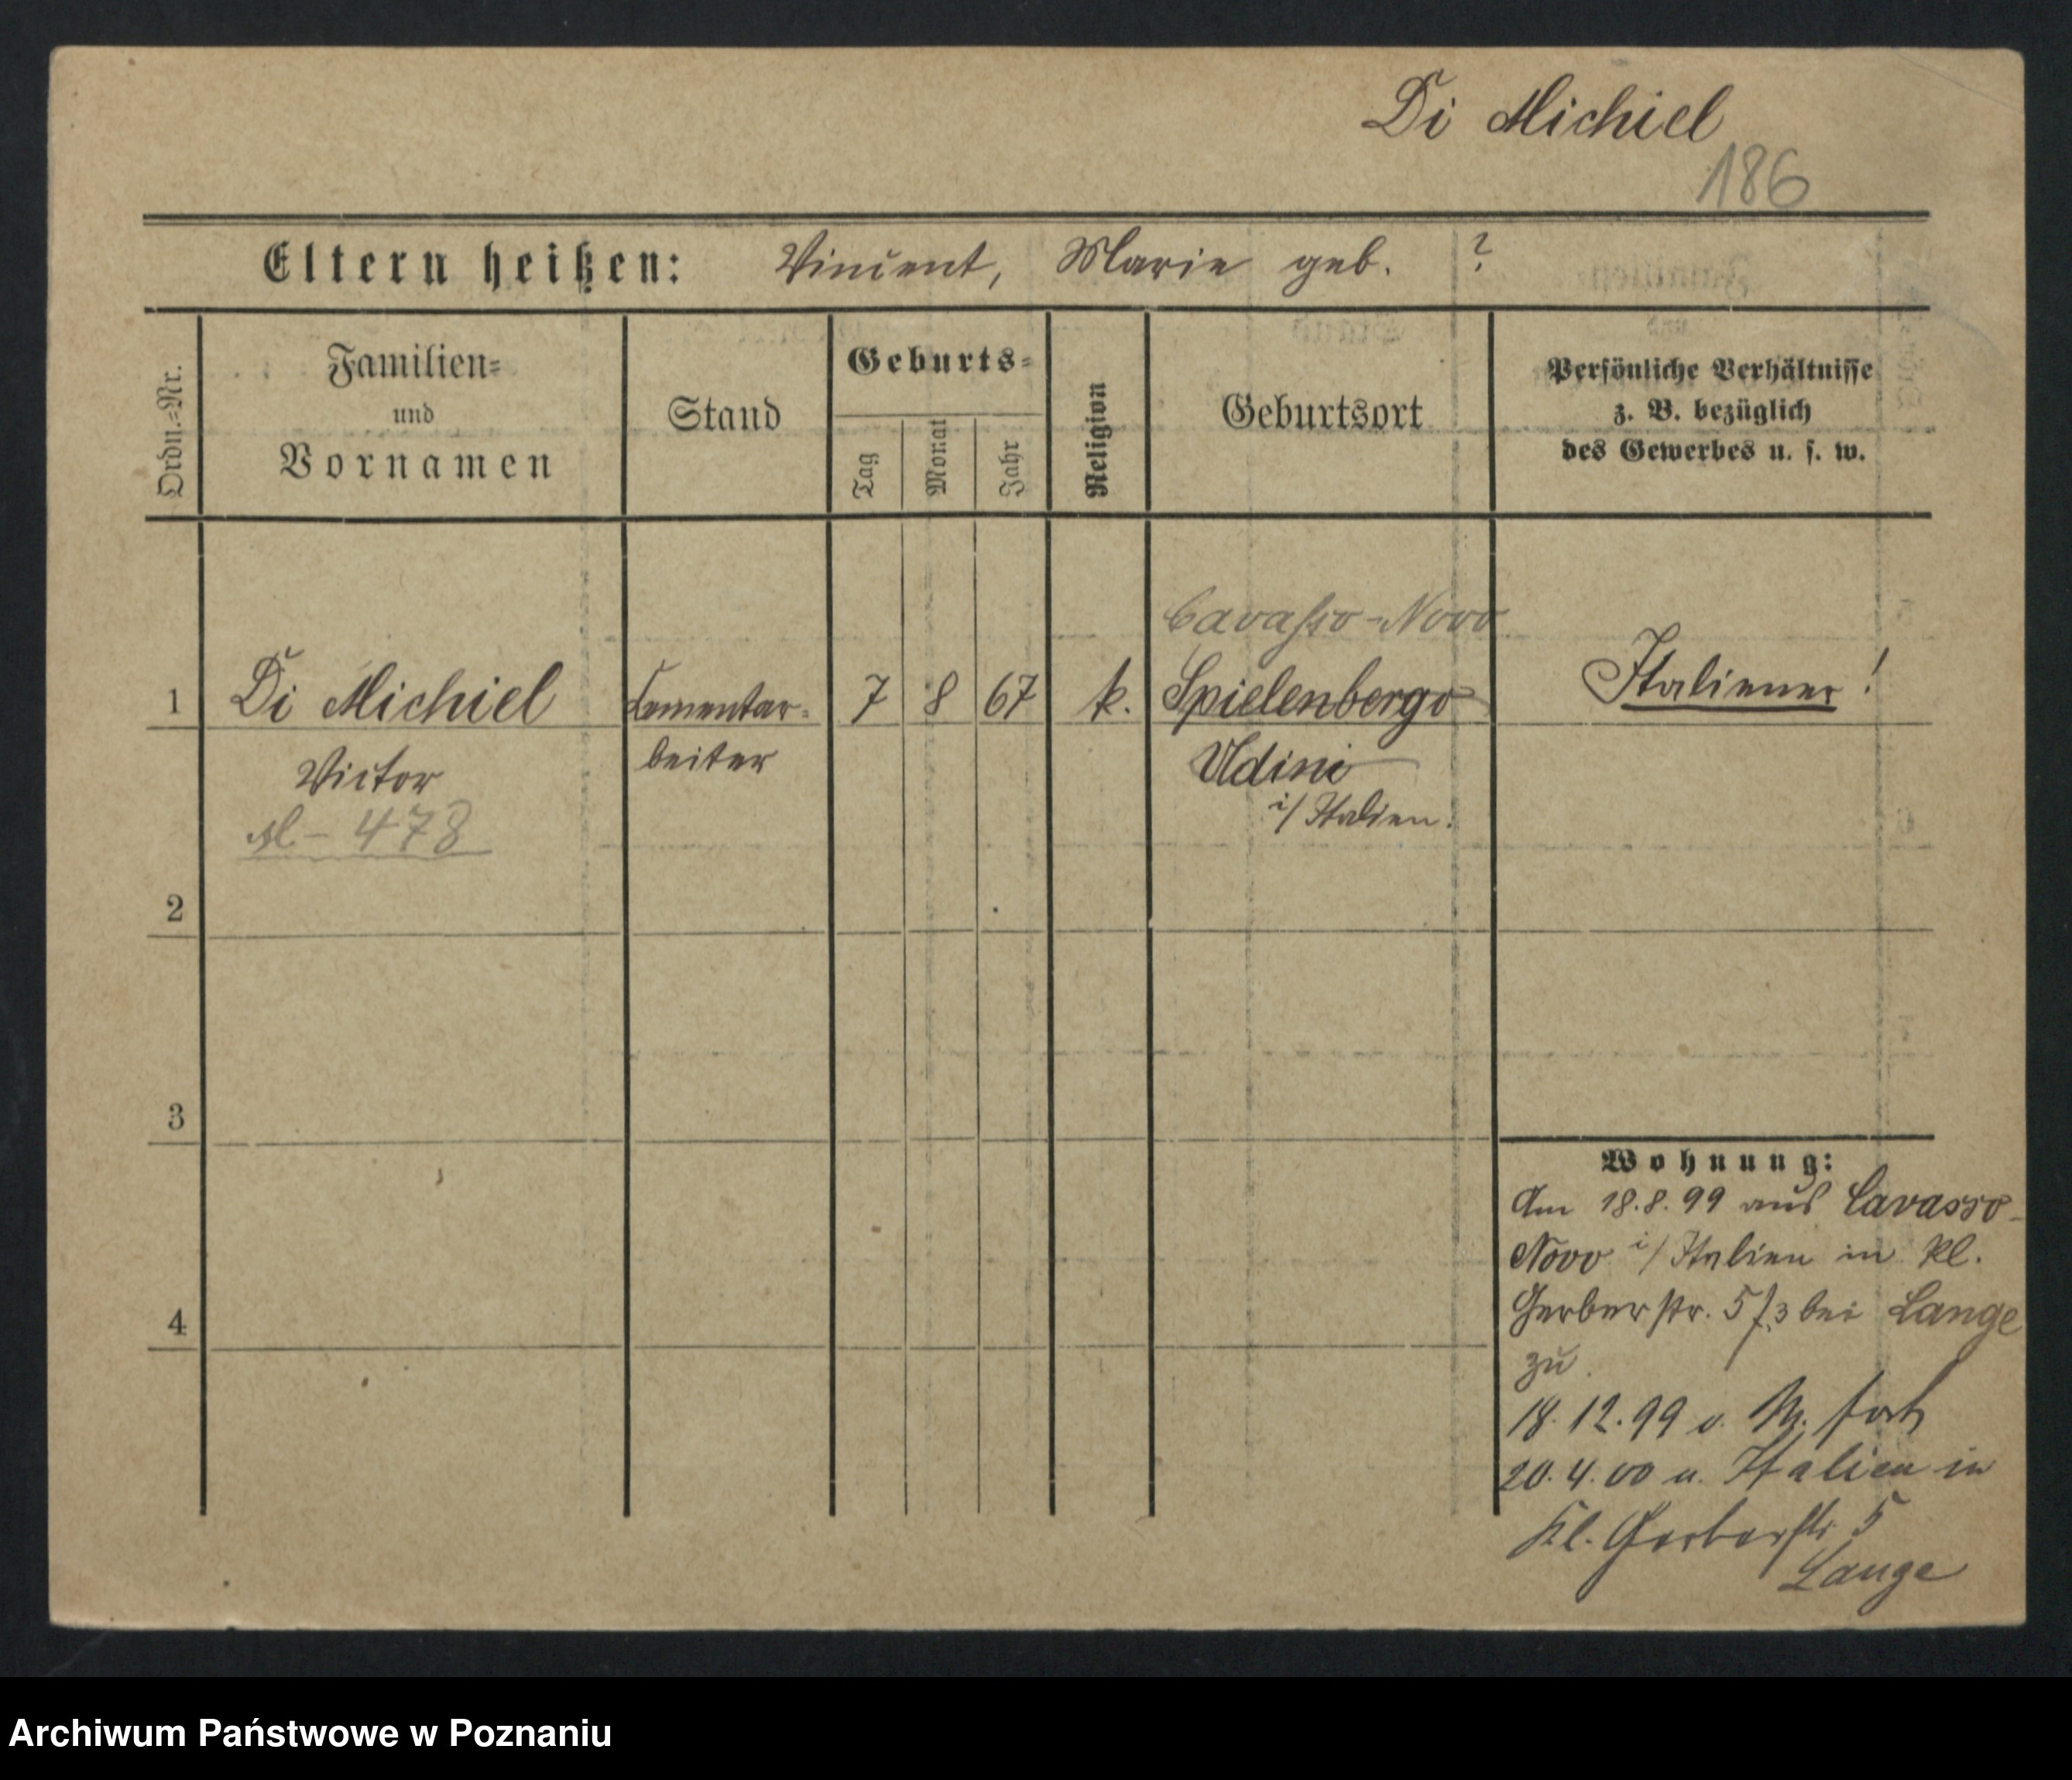 Di Michiel
186
Eltern heißen: Vincent, Marie geb. ?
Ordn.-Nr.
Familien-
und
Vornamen
Stand
Geburts-
Tag
Monat
Jahr
Religion
Geburtsort
Persönliche Verhältnisse
z. B. bezüglich
des Gewerbes u. s. w.
Cavasso-Novo
1 Di Michiel Cementar- 7 8 67 k. Spielenbergo Italiener!
Victor beiter Udini
478 i/ Italien.
2
3
4
Wohnung:
Am 18.8.99 aus Cavasso-
Novo i/ Italien in Kl.
Gerberstr. 5 bei Lange
zu
18.12.99 fort
20.4.00 Italien in
Kl. Gerberstr 5
Lange
Archiwum Państwowe w Poznaniu